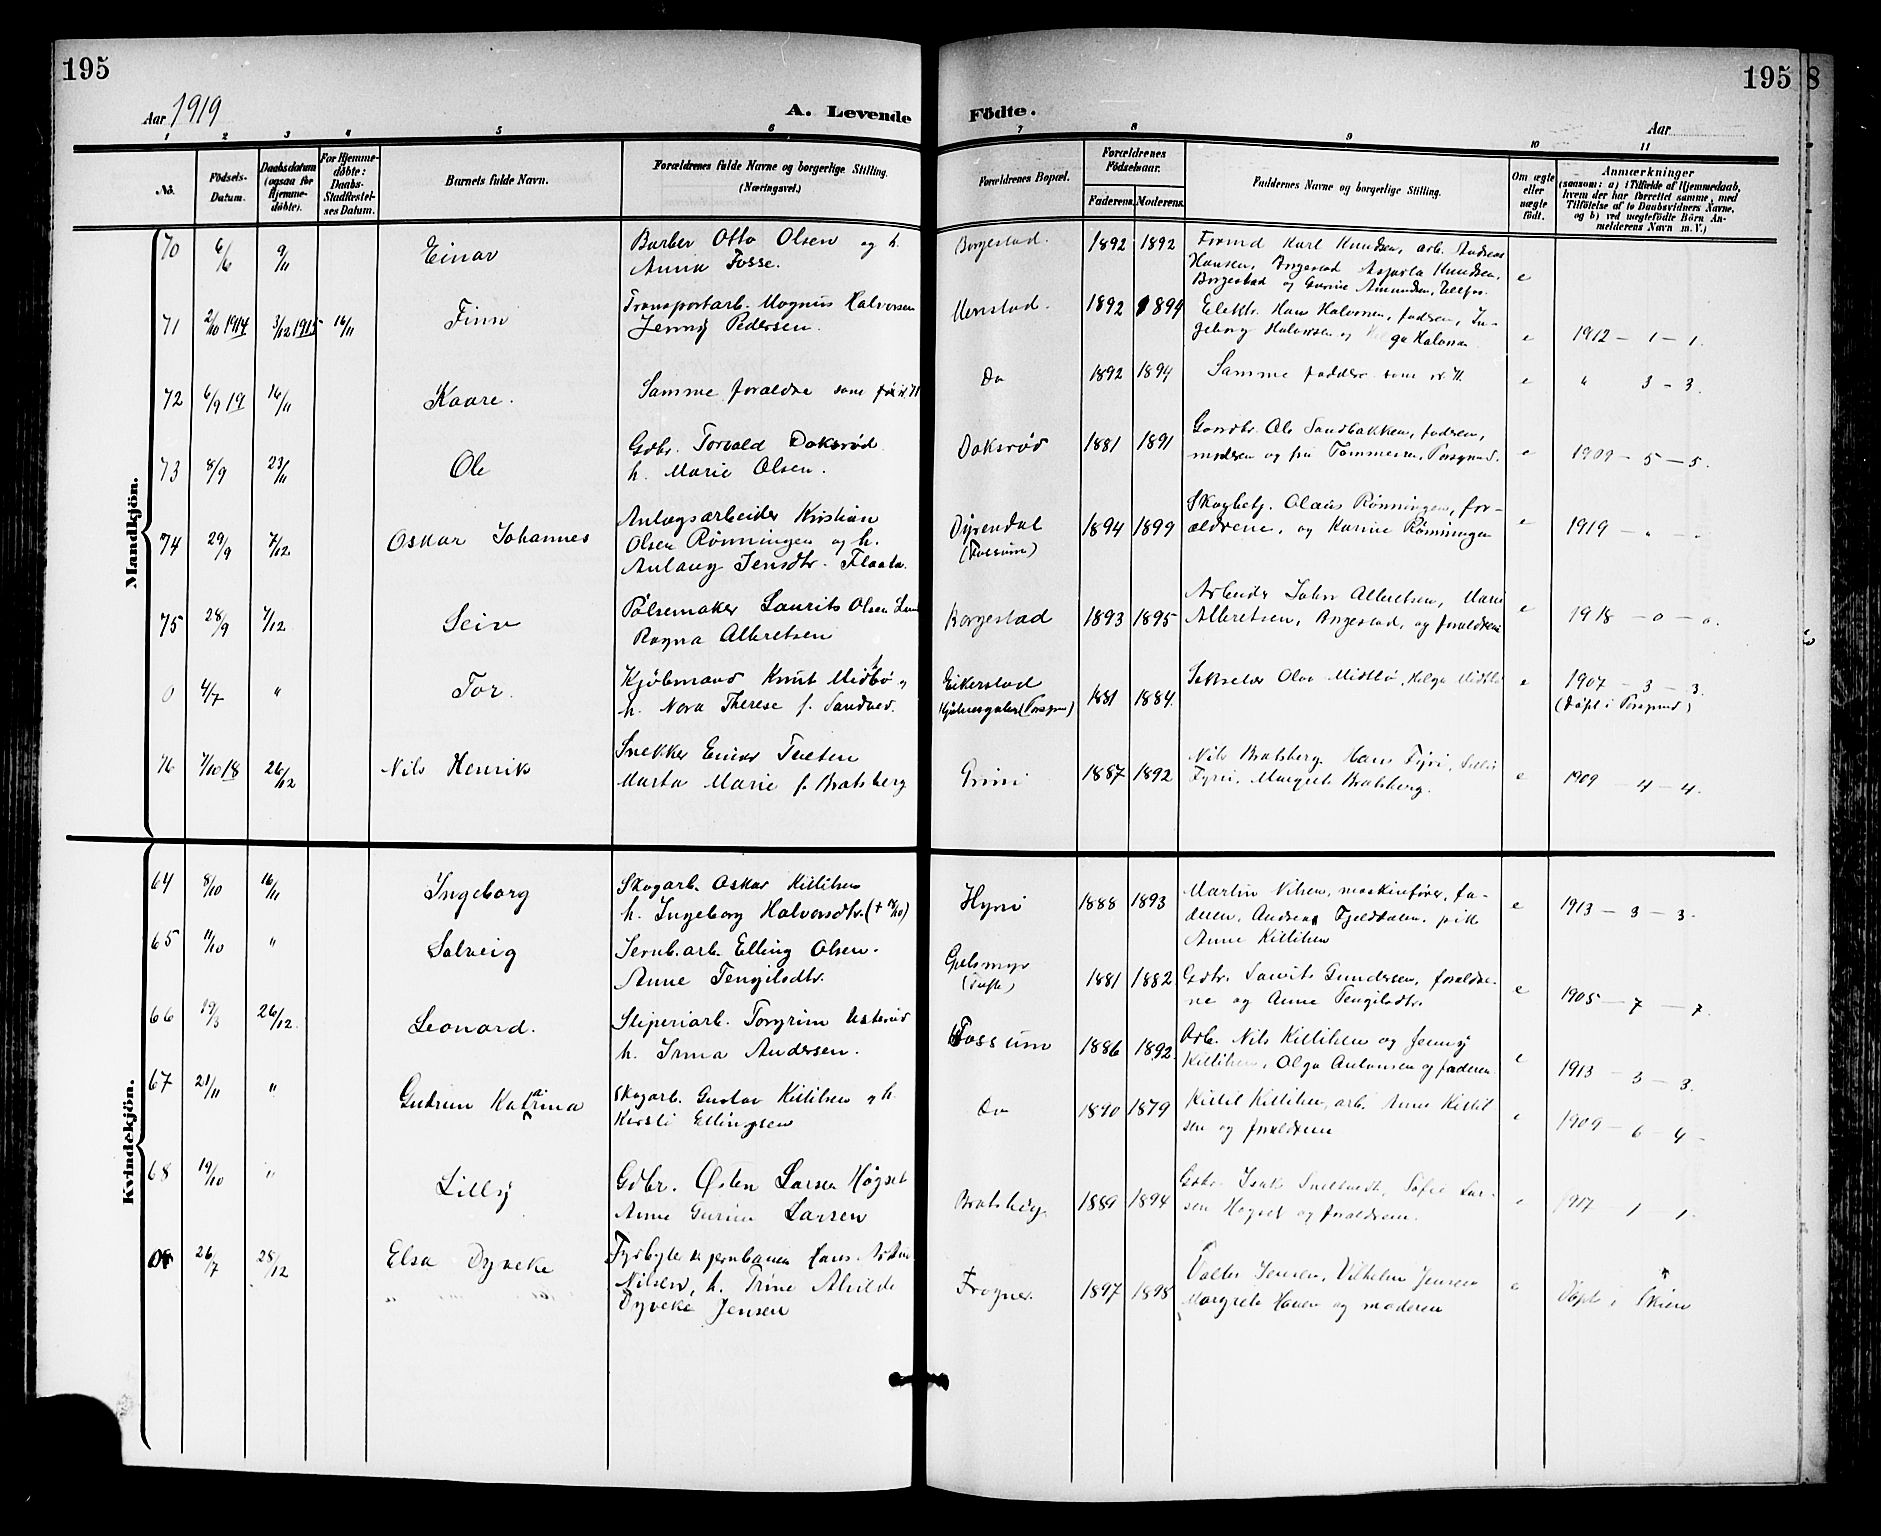 195
195 8
Aar 1919
A. Levende
Födte.
Aar
1 2 3 4 5 6 7 8 9 10 11
No.
Födsels-Datum.
Daabsdatum (ogsaa for Hjemme-döbte).
For Hjemme-döbte: Daabs-Stadfæstel-ses Datum.
Barnets fulde Navn.
Forældrenes fulde Navne og borgerlige Stilling.
(Næringsvei.)
Forældrenes Bopæl.
Forældrenes Födselsaar.
Faderens. Moderens.
Faddernes Navne og borgerlige Stilling.
Om ægte eller uægte födt.
Anmærkninger
(saasom: a) i Tilfælde af Hjemmedaab,
hvem der har forrettet samme, med
Tilföielse af to Daabsvidners Navne,
og b) ved uægtefödte Börn An-
melderens Navn m. V.)
Mandkjön.
70 6/6 9/11 Einar
Barber Otto Olsen og h.
Anna Fosse.
Borgestad. 1892 1892
Formd Karl Knudsen, arb. Andreas
Hansen, Borgestad Knudsen,
Borgestad og Gurine Amundsen,
e
71 2/10 1914 3/12 1915 16/11 Finn
Transportarb. Magnus Halvorsen
Jenny Pedersen.
Menstad. 1892 1894
Elektr. Hans Halvorsen, faderen, In-
geborg Halvorsen og Helga Halvorsen
e 1912 - 1 - 1.
72 6/9 19 16/11 Kaare.
Samme forældre som nr. 71
Do 1892 1894
Samme faddere som nr. 71.
e " 3 - 3.
73 8/9 23/11 Ole
Gdbr. Torvald Doksrød
h. Marie Olsen.
Doksrød 1881 1891
Gaardbr. Ole Sandbakken, faderen,
moderen og fru
e 1909 - 5 - 5.
74 29/9 7/12 Oskar Johannes
Anlægsarbeider Kristian
Olsen Rønningen og h.
Aulaug Jensdtr. Flaata.
Dyrendal
(Fossum)
1894 1899
Skogbetj. Olaus Rønningen, for-
ældrene, og Karine Rønningen
e 1919 - " - "
75 28/9 7/12 Leiv
Pølsemaker Laurits Olsen
Ragna Albretsen
Borgestad 1893 1895
Arbeider Johan Albretsen, Marie
Albretsen, Borgestad, og forældrene
e 1918 - 0 - 0.
0 4/7 " Tor.
Kjøbmand Knut Midbø og
h. Nora Therese f. Sandved.
Eikerstad
1881 1884.
Olav Midtbø, Helga Midtbø
e 1907 - 3 - 3.
(Døpt i Porsgrund)
76 7/10 18 26/12 Nils Henrik
Snekker Einar Tveten
Marta Marie f. Bratsberg
Grini 1887 1892
Nils Bratsberg. Hans Fyri,
Fyri, Margrete Bratsberg.
e 1909 - 4 - 4.
Kvindekjön.
64 8/10 16/11 Ingeborg
Skogarb. Oskar Kittilsen
h. Ingeborg Halvorsdtr.
Hyni 1888 1893
Martin Nilsen, maskinfører, fa-
deren, Andrea Fjelddalen, pike
Anne Kittilsen
e 1913 - 3 - 3.
65 11/10 " Solveig
Jernb.arb. Elling Olsen.
Anne Tengilsdtr.
Gjelsmyr
1881 1882
Gdbr. Laurits Gundersen, forældre-
ne og Anne Tengilsdtr.
e 1905 - 7 - 7.
66 19/3 26/12. Leonard.
Sliperiarb. Torgrim
h. Irma Andersen.
Fossum 1886 1892
Arb. Nils Kittilsen og Jenny
Kittilsen, Olga Antonsen og faderen
e 1913 - 3 - 3.
67 21/11 " Gudrun Katrina
Skogarb. Gustav Kittilsen og h.
Kirsti Ellingsen
Do 1890 1879
Kittil Kittilsen, arb. Anne Kittil
sen og forældrene
e 1909 - 6 - 4 -
68 19/10 " Lilly
Gdbr. Østen Larsen Høgset
Anne Gurine Larsen
Bratsberg. 1889 1894
Gdbr. Isak Sofie Lar-
sen Høgset og forældrene.
e 1917 - 1 - 1.
0 26/7 28/12 Elsa Dyveke
Fyrbyter v. jernbanen Hans
Nilsen, h. Trine Alvilde
Dyveke Jensen
Frogner 1897 1898
Valter Jensen, Vilhelm Jensen
Margrete Hansen og moderen
e Døpt i Skien